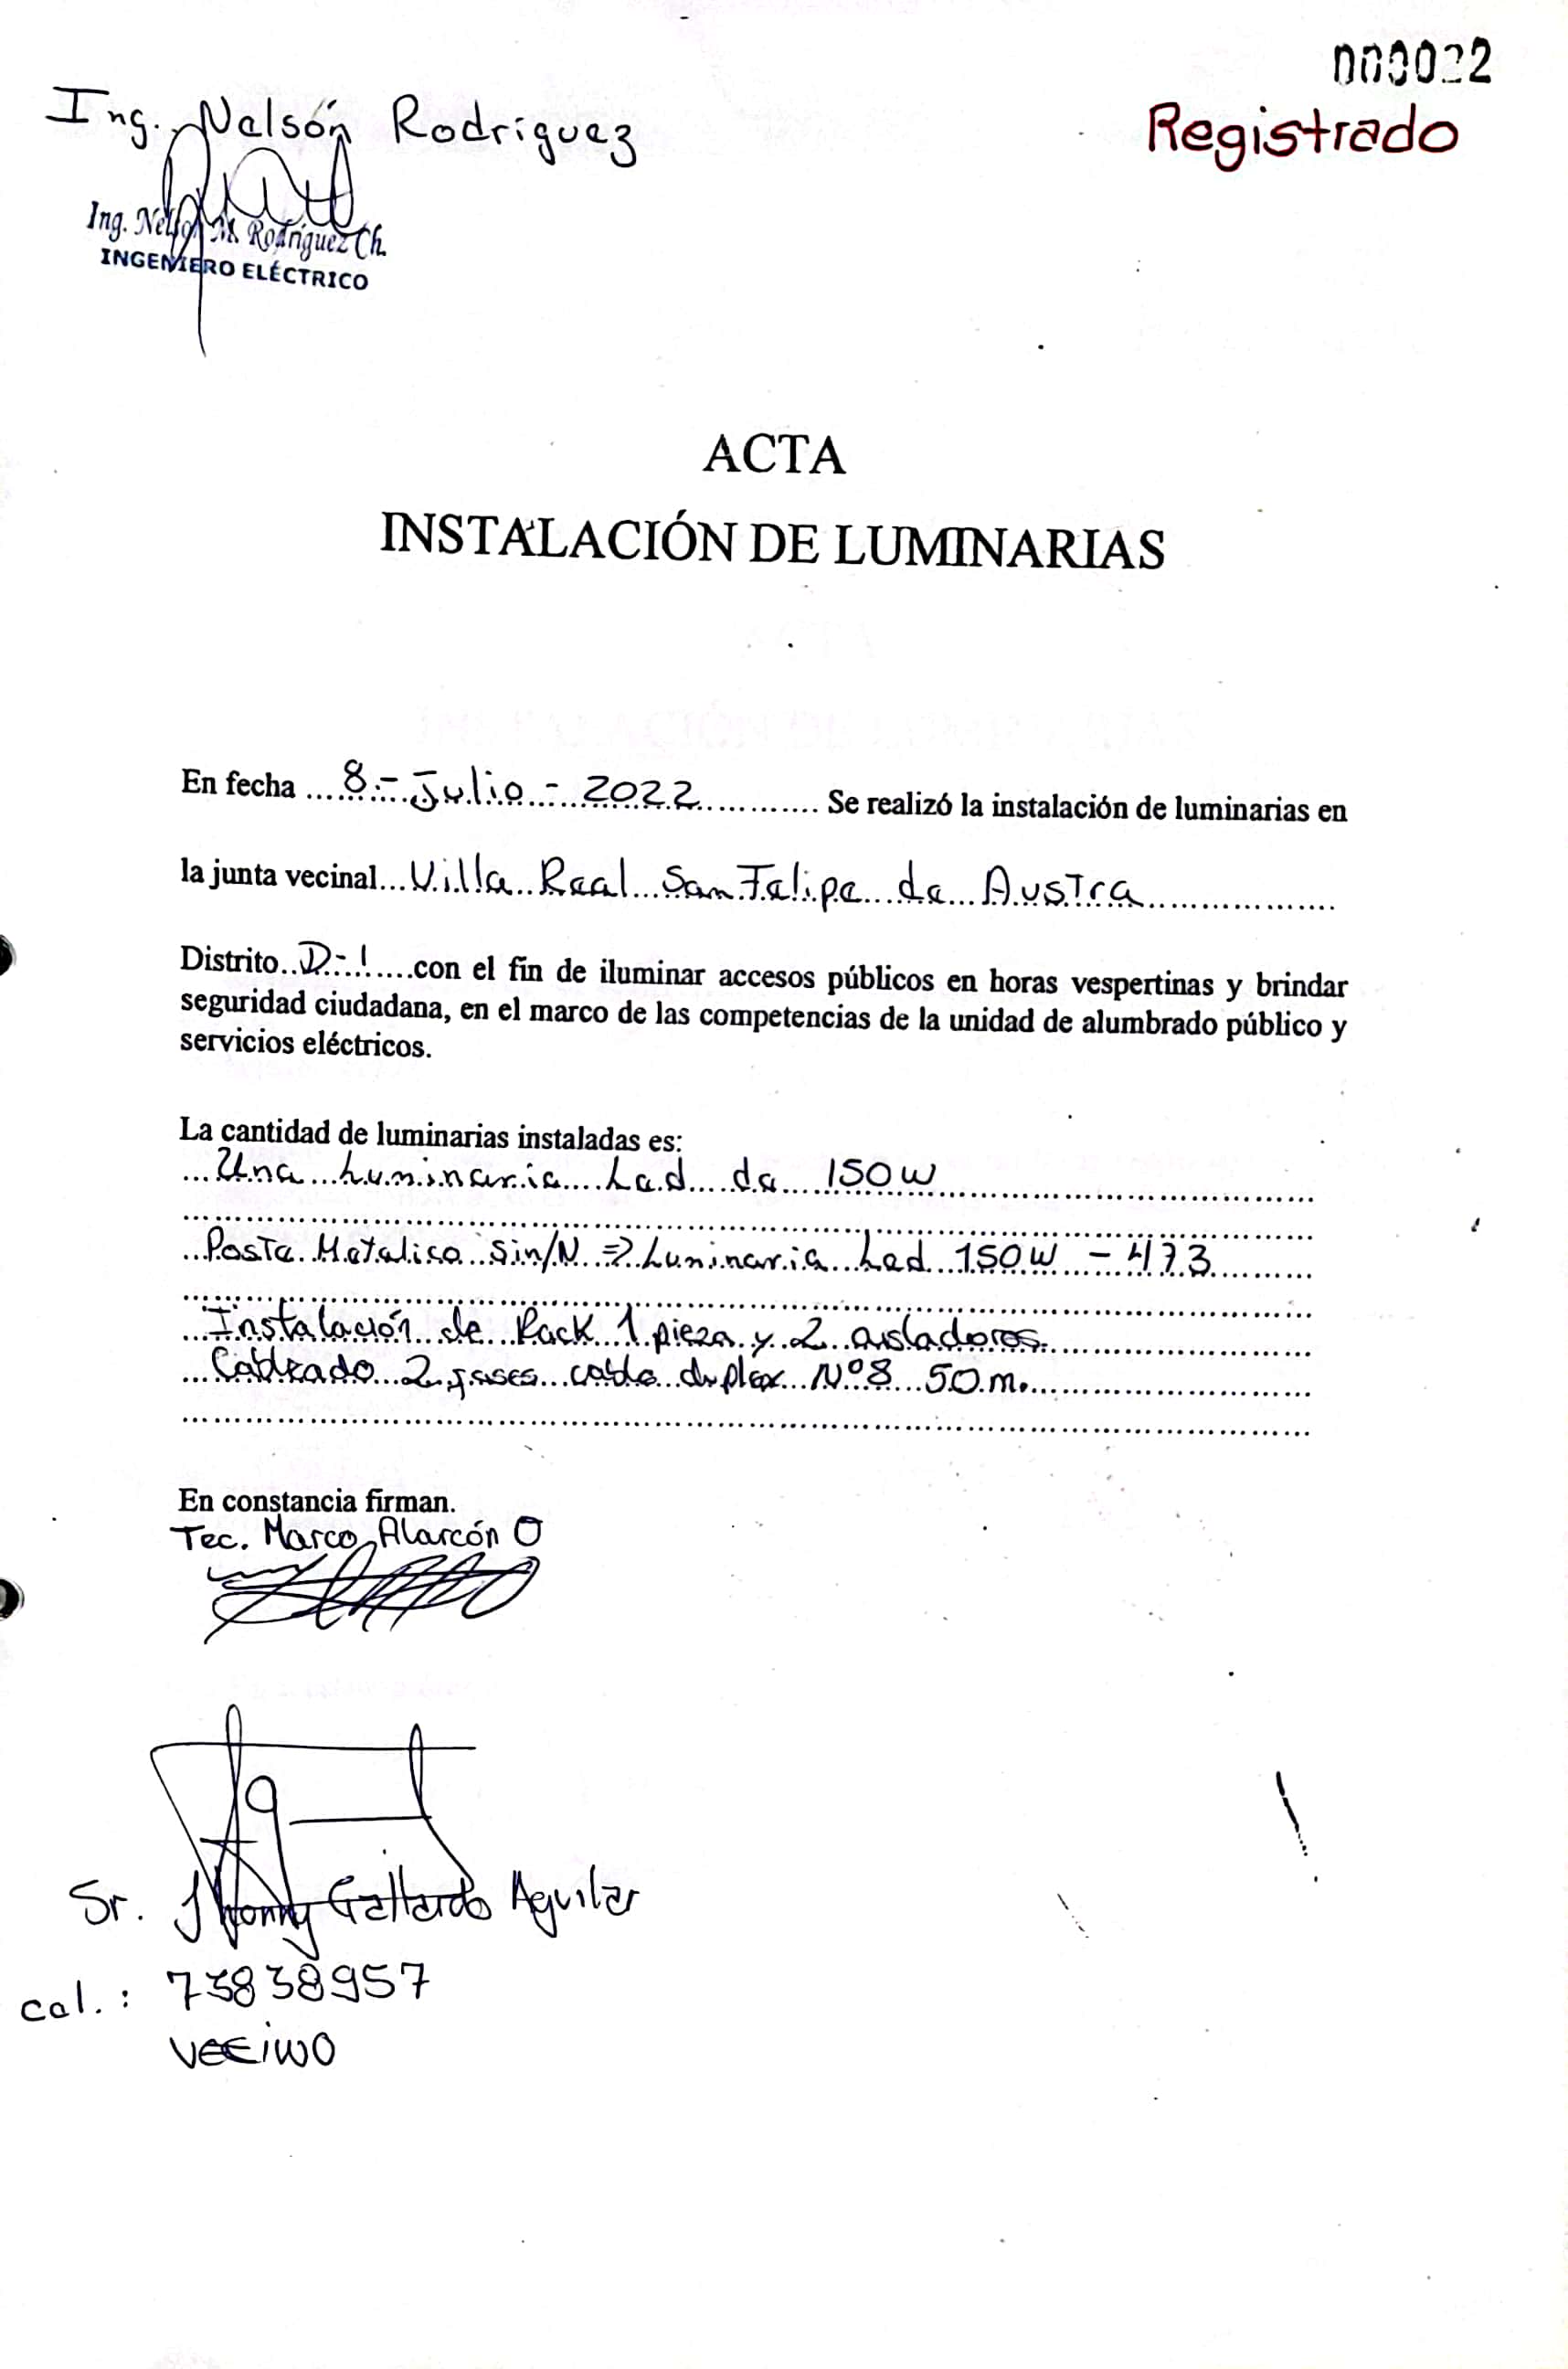 000022
Ing. Nelsón Rodriguez
Registrado
Ing. Nelson M. Rodríguez Ch.
INGENIERO ELÉCTRICO
ACTA
INSTALACIÓN DE LUMINARIAS
En fecha ....8.-.Julio.-.2022............. Se realizó la instalación de luminarias en
la junta vecinal...Villa Real San Felipe de Austra....................
Distrito..D-1....con el fin de iluminar accesos públicos en horas vespertinas y brindar
seguridad ciudadana, en el marco de las competencias de la unidad de alumbrado público y
servicios eléctricos.
La cantidad de luminarias instaladas es:
...Una Luminaria Led de 150W
...Poste Metalico Sin/N => Luminaria Led 150W - 473
...Instalación de Rack 1 pieza y 2 aisladores.
...Cableado 2 fases cable duplex Nº8 50 m.
En constancia firman.
Tec. Marco Alarcón O
Sr. Jhonny Gallardo Aguilar
cel. : 73838957
VECINO